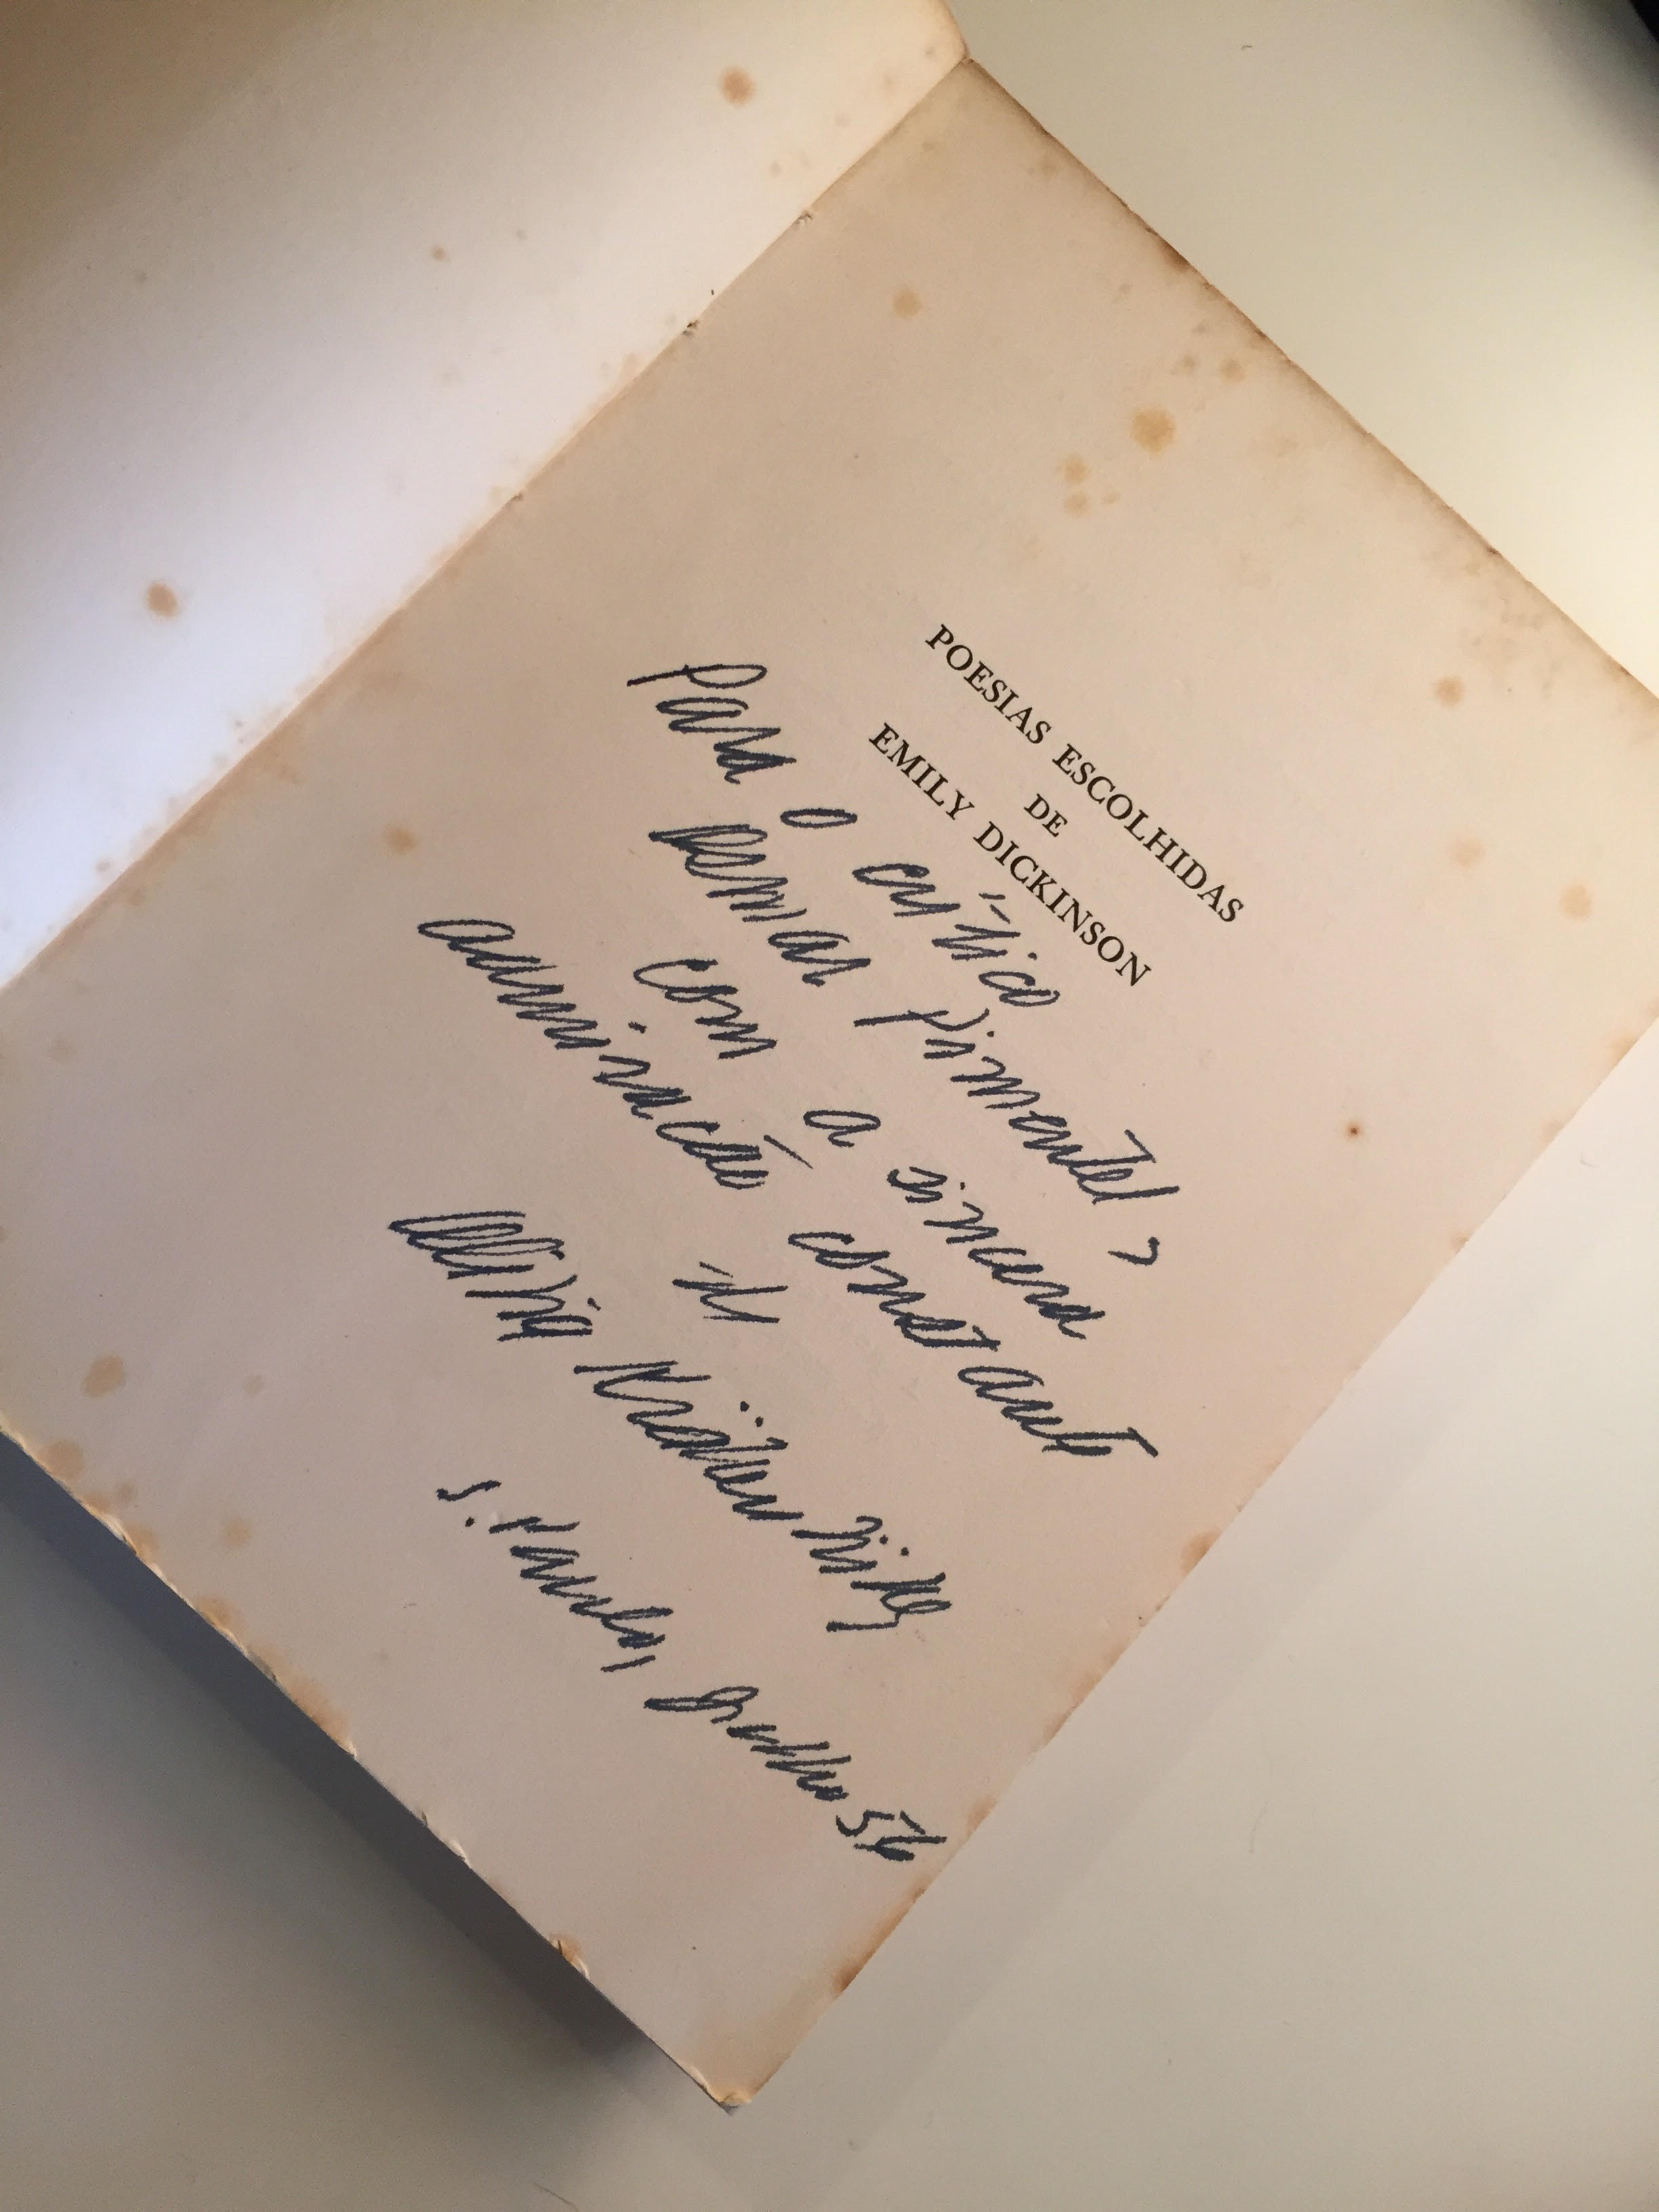 POESIAS ESCOLHIDAS
DE
EMILY DICKINSON
Para o crítico
Osmar Pimentel,
com a sincera
admiração constante
de
Olívia Krähenbühl
S. Paulo, Junho 56